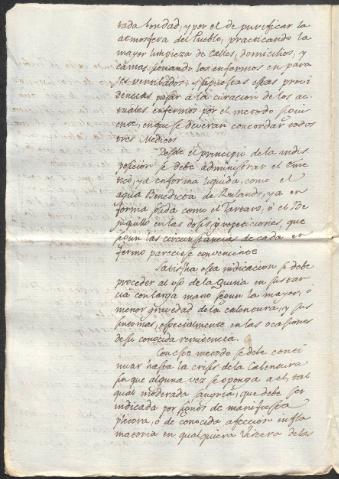 tada bondad, y por el de purificar la
atmosfera del Pueblo, practicando la
mayor limpieza de Calles, domicilios, y
camas, situando los enfermos en para
ges ventilados; estas provi
dencias pasar à la curacion de los ac
tuales enfermos por el metodo siguï
ente, en que se deveran concordar todos
tres Medicos
Desde el principio de la indis
posicion se debe administrar el Eme
tico, ya en forma liquida, como el
agua Benedicta de Rulando, ya en
forma solida como el Tartaro, ó el Be
juquillo en las dosis, y repeticiones, que
segun las circunstancias de cada en
fermo pareciese conveniente
Satisfha esta indicacion se debe
proceder al uso de la Quina en sustan
cia con larga mano segun la mayor, ó
menor gravedad de la calentura, y sus
sintomas, especialmente en las ocasiones
de su conocida remitencia.
Con este metodo se debe conti
nuar hasta la crisis de la Calentura
sin que alguna vez se oponga a el, tal
qual moderada sangria, que debe ser
indicada por signos de manifiesta
pletora, ó de conocida afeccion infla
matoria en qualquiera viscera de las